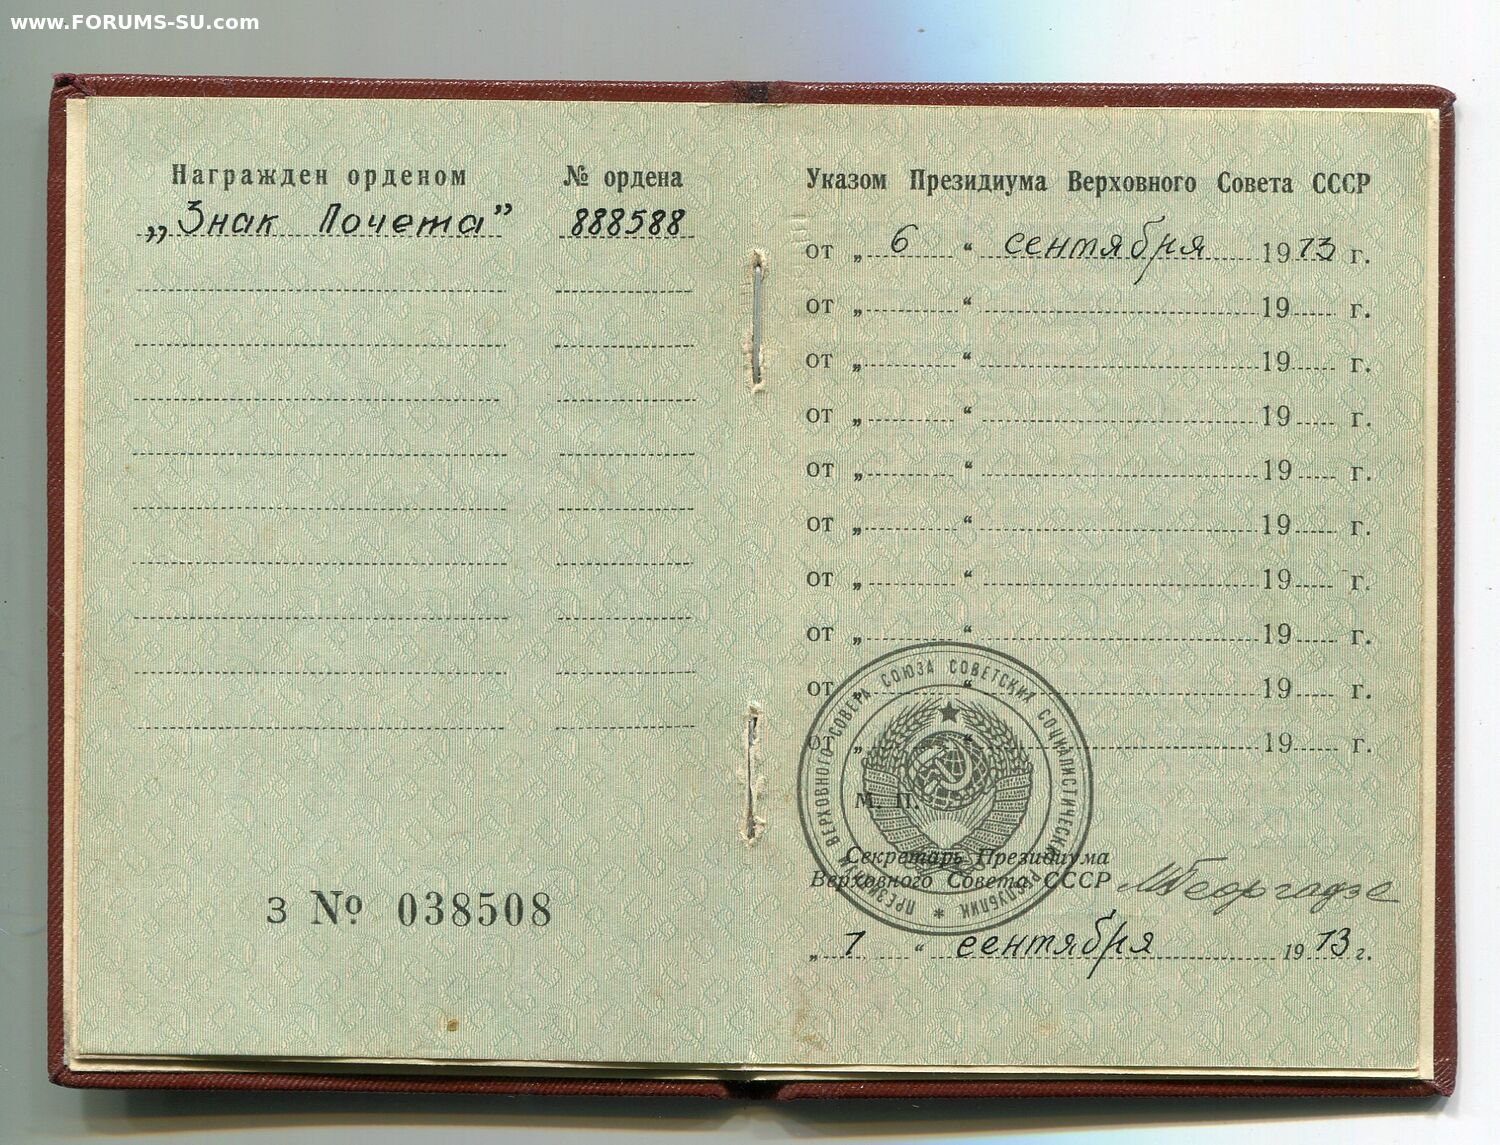 www.FORUMS-SU.com
Награжден орденом № ордена
„Знак Почета” 888588
З № 038508
Указом Президиума Верховного Совета СССР
от „ 6 “ сентября 1973 г.
от „ “ 19 г.
от „ “ 19 г.
от „ “ 19 г.
от „ “ 19 г.
от „ “ 19 г.
от „ “ 19 г.
от „ “ 19 г.
от „ “ 19 г.
от „ “ 19 г.
ПРЕЗИДИУМ ВЕРХОВНОГО СОВЕТА СОЮЗА СОВЕТСКИХ СОЦИАЛИСТИЧЕСКИХ РЕСПУБЛИК *
М. П.
Секретарь Президиума
Верховного Совета СССР МГеоргадзе
„ 7 “ сентября 1973 г.